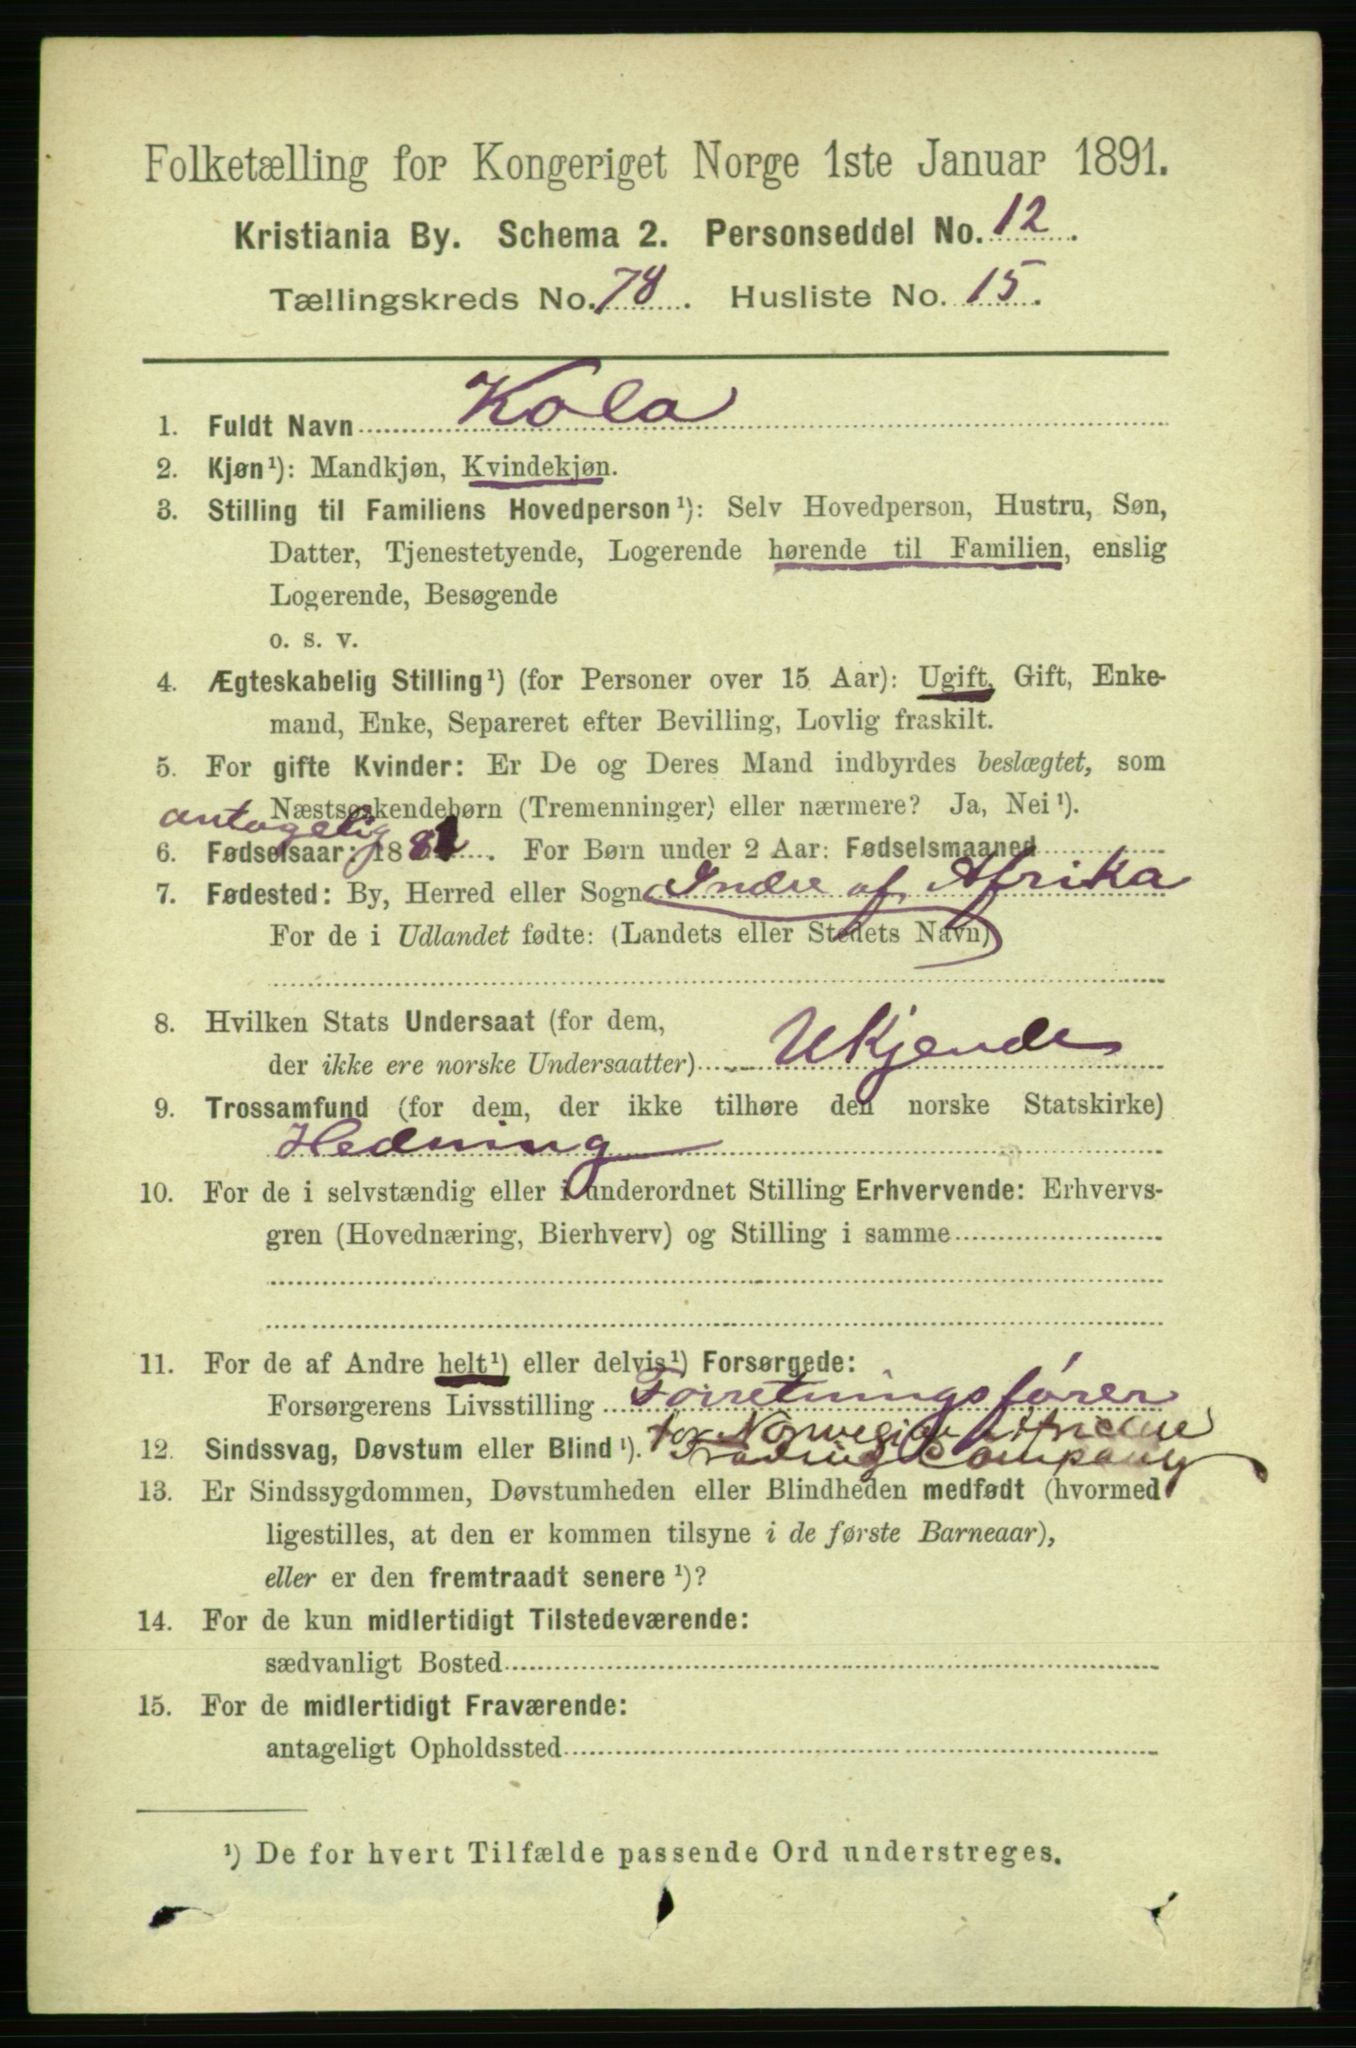 Folketælling for Kongeriget Norge 1ste Januar 1891.
Kristiania By. Schema 2. Personseddel No. 12.
Tællingskreds No. 78. Husliste No. 15.
1. Fuldt Navn Kola
2. Kjøn¹): Mandkjøn, Kvindekjøn.
3. Stilling til Familiens Hovedperson¹): Selv Hovedperson, Hustru, Søn,
Datter, Tjenestetyende, Logerende hørende til Familien, enslig
Logerende, Besøgende
o. s. v.
4. Ægteskabelig Stilling¹) (for Personer over 15 Aar): Ugift, Gift, Enke-
mand, Enke, Separeret efter Bevilling, Lovlig fraskilt.
5. For gifte Kvinder: Er De og Deres Mand indbyrdes beslægtet, som
Næstsøskendebørn (Tremenninger) eller nærmere? Ja, Nei¹).
antagelig
6. Fødselsaar: 1881. For Børn under 2 Aar: Fødselsmaaned
7. Fødested: By, Herred eller Sogn Indre af Afrika
For de i Udlandet fødte: (Landets eller Stedets Navn)
8. Hvilken Stats Undersaat (for dem,
der ikke ere norske Undersaatter) Ukjende
9. Trossamfund (for dem, der ikke tilhøre den norske Statskirke)
Hedning
10. For de i selvstændig eller i underordnet Stilling Erhvervende: Erhvervs-
gren (Hovednæring, Bierhverv) og Stilling i samme
11. For de af Andre helt¹) eller delvis¹) Forsørgede:
Forsørgerens Livsstilling Forretningsfører
for Norwegian African
12. Sindssvag, Døvstum eller Blind¹). Trading Company
13. Er Sindssygdommen, Døvstumheden eller Blindheden medfødt (hvormed
ligestilles, at den er kommen tilsyne i de første Barneaar),
eller er den fremtraadt senere¹)?
14. For de kun midlertidigt Tilstedeværende:
sædvanligt Bosted
15. For de midlertidigt Fraværende:
antageligt Opholdssted
¹) De for hvert Tilfælde passende Ord understreges.